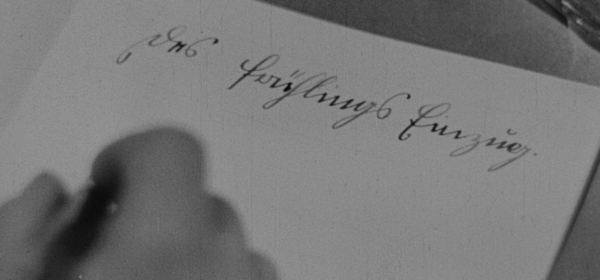 Des Frühlings Einzug.